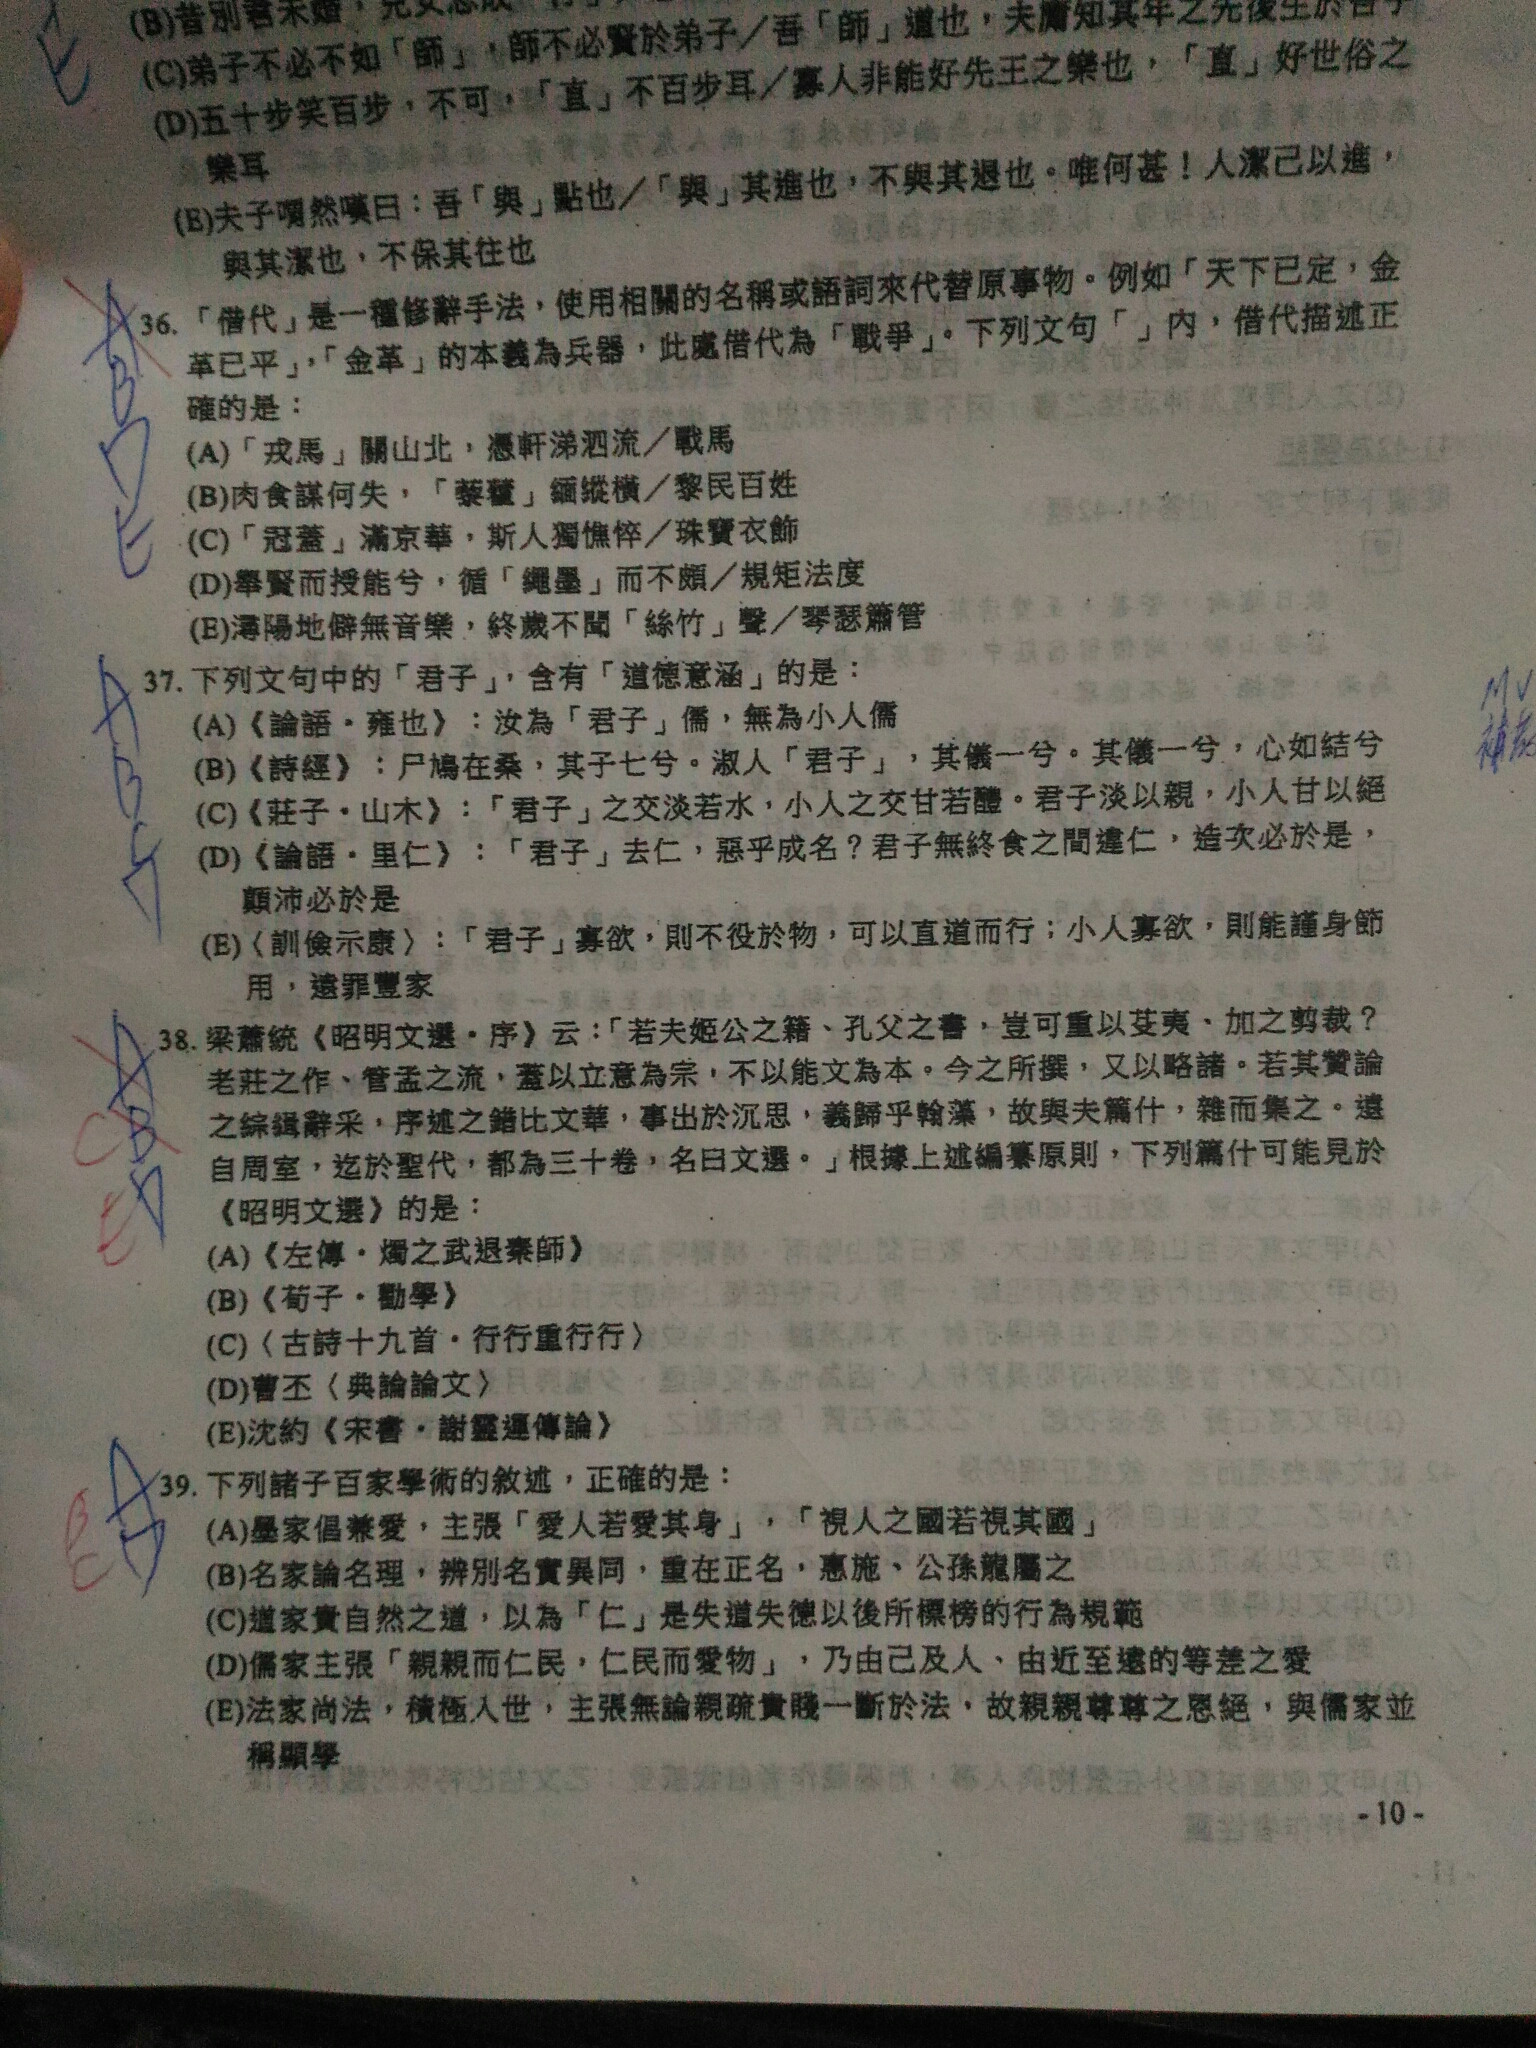 (C)弟子不必不如「師」，師不必賢於弟子／吾「師」道也，夫庸知其年之先後生於吾乎
(D)五十步笑百步，不可，「直」不百步耳／寡人非能好先王之樂也，「直」好世俗之
樂耳
(E)夫子喟然嘆曰：吾「與」點也／「與」其進也，不與其退也。唯何甚！人潔己以進，
與其潔也，不保其往也
36.「借代」是一種修辭手法，使用相關的名稱或語詞來代替原事物。例如「天下已定，金
革已平」，「金革」的本義為兵器，此處借代為「戰爭」。下列文句「」內，借代描述正
確的是：
(A)「戎馬」關山北，憑軒涕泗流／戰馬
(B)肉食謀何失，「藜藿」緬縱橫／黎民百姓
(C)「冠蓋」滿京華，斯人獨憔悴／珠寶衣飾
(D)舉賢而授能兮，循「繩墨」而不頗／規矩法度
(E)潯陽地僻無音樂，終歲不聞「絲竹」聲／琴瑟簫管
A
B
D
E
37.下列文句中的「君子」，含有「道德意涵」的是：
(A)《論語・雍也》：汝為「君子」儒，無為小人儒
(B)《詩經》：尸鳩在桑，其子七兮。淑人「君子」，其儀一兮。其儀一兮，心如結兮
(C)《莊子・山木》：「君子」之交淡若水，小人之交甘若醴。君子淡以親，小人甘以絕
(D)《論語・里仁》：「君子」去仁，惡乎成名？君子無終食之間違仁，造次必於是，
顛沛必於是
(E)〈訓儉示康〉：「君子」寡欲，則不役於物，可以直道而行；小人寡欲，則能謹身節
用，遠罪豐家
A
B
C
D
MV
38.梁蕭統《昭明文選・序》云：「若夫姬公之籍、孔父之書，豈可重以芟夷、加之剪裁？
老莊之作、管孟之流，蓋以立意為宗，不以能文為本。今之所撰，又以略諸。若其贊論
之綜緝辭采，序述之錯比文華，事出於沉思，義歸乎翰藻，故與夫篇什，雜而集之。遠
自周室，迄於聖代，都為三十卷，名曰文選。」根據上述編纂原則，下列篇什可能見於
《昭明文選》的是：
(A)《左傳・燭之武退秦師》
(B)《荀子・勸學》
(C)〈古詩十九首・行行重行行〉
(D)曹丕〈典論論文〉
(E)沈約《宋書・謝靈運傳論》
A
C B
E D
39.下列諸子百家學術的敘述，正確的是：
(A)墨家倡兼愛，主張「愛人若愛其身」，「視人之國若視其國」
(B)名家論名理，辨別名實異同，重在正名，惠施、公孫龍屬之
(C)道家貴自然之道，以為「仁」是失道失德以後所標榜的行為規範
(D)儒家主張「親親而仁民，仁民而愛物」，乃由己及人、由近至遠的等差之愛
(E)法家尚法，積極入世，主張無論親疏貴賤一斷於法，故親親尊尊之恩絕，與儒家並
稱顯學
A
B D
C
- 10 -